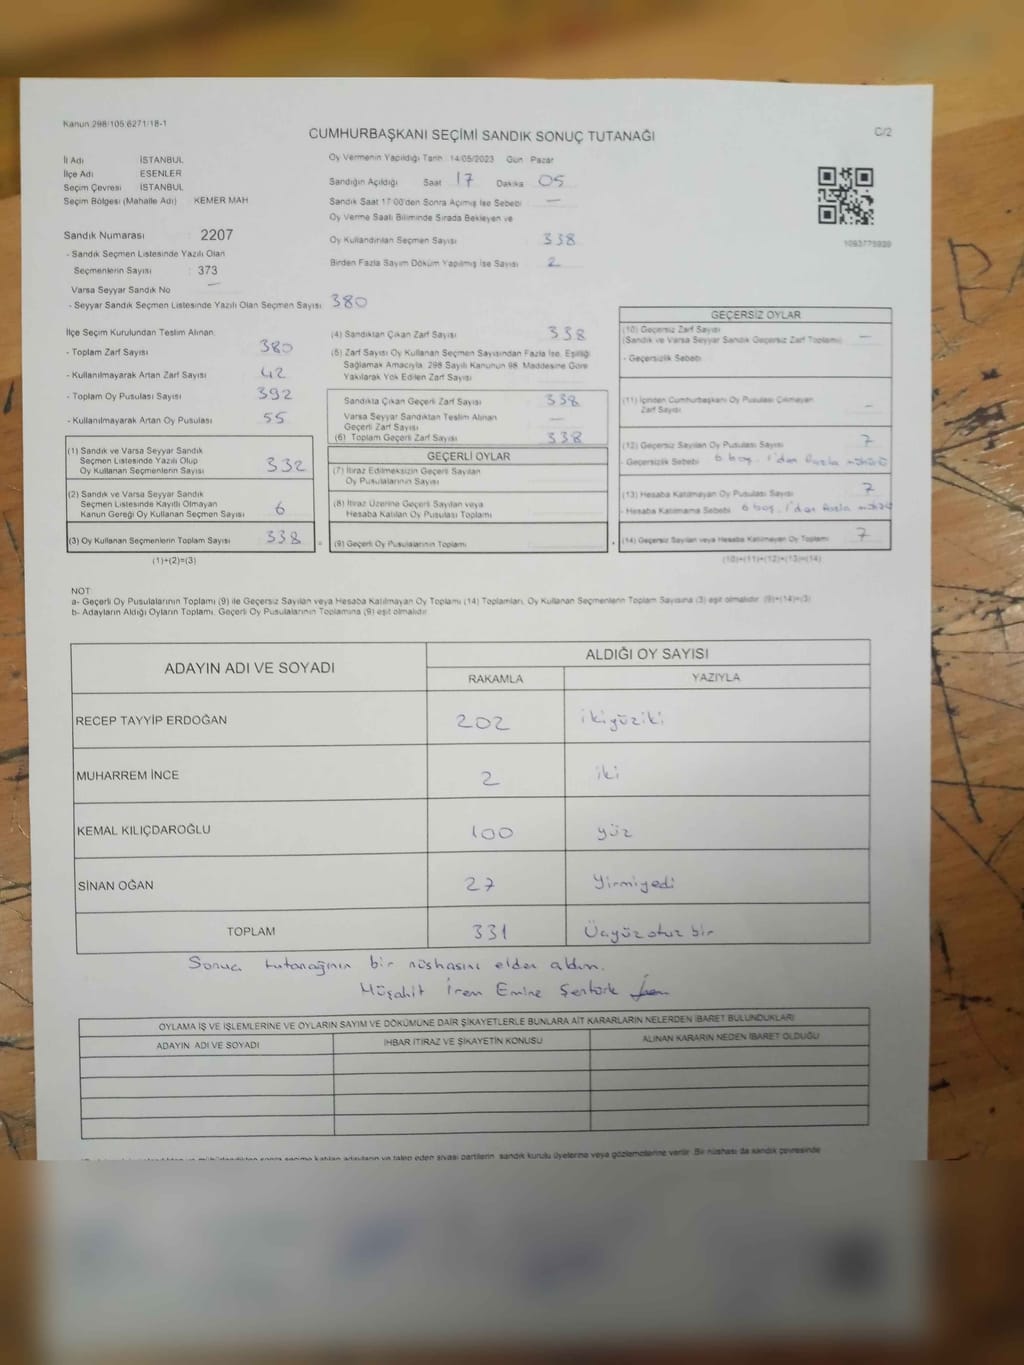 Kanun 298/105 6271/18-1
CUMHURBAŞKANI SEÇİMİ SANDIK SONUÇ TUTANAĞI
C/2
İl Adı İSTANBUL
İlçe Adı ESENLER
Seçim Çevresi İSTANBUL
Seçim Bölgesi (Mahalle Adı) KEMER MAH
Sandık Numarası : 2207
- Sandık Seçmen Listesinde Yazılı Olan
Seçmenlerin Sayısı : 373
Varsa Seyyar Sandık No —
- Seyyar Sandık Seçmen Listesinde Yazılı Olan Seçmen Sayısı 380
Oy Vermenin Yapıldığı Tarih 14/05/2023 Gün Pazar
Sandığın Açıldığı Saat 17 Dakika 05
Sandık Saat 17:00'den Sonra Açılmış İse Sebebi —
Oy Verme Saati Bitiminde Sırada Bekleyen ve
Oy Kullandırılan Seçmen Sayısı 338
Birden Fazla Sayım Döküm Yapılmış İse Sayısı 2
1093775920
İlçe Seçim Kurulundan Teslim Alınan
- Toplam Zarf Sayısı 380
- Kullanılmayarak Artan Zarf Sayısı 42
- Toplam Oy Pusulası Sayısı 392
- Kullanılmayarak Artan Oy Pusulası 55
(1) Sandık ve Varsa Seyyar Sandık
Seçmen Listesinde Yazılı Olup
Oy Kullanan Seçmenlerin Sayısı 332
(2) Sandık ve Varsa Seyyar Sandık
Seçmen Listesinde Kayıtlı Olmayan
Kanun Gereği Oy Kullanan Seçmen Sayısı 6
(3) Oy Kullanan Seçmenlerin Toplam Sayısı 338
(1)+(2)=(3)
(4) Sandıktan Çıkan Zarf Sayısı 338
(5) Zarf Sayısı Oy Kullanan Seçmen Sayısından Fazla İse, Eşitliği
Sağlamak Amacıyla, 298 Sayılı Kanunun 98. Maddesine Göre
Yakılarak Yok Edilen Zarf Sayısı
Sandıkta Çıkan Geçerli Zarf Sayısı 338
Varsa Seyyar Sandıktan Teslim Alınan
Geçerli Zarf Sayısı —
(6) Toplam Geçerli Zarf Sayısı 338
GEÇERLİ OYLAR
(7) İtiraz Edilmeksizin Geçerli Sayılan
Oy Pusulalarının Sayısı
(8) İtiraz Üzerine Geçerli Sayılan veya
Hesaba Katılan Oy Pusulası Toplamı
= (9) Geçerli Oy Pusulalarının Toplamı +
GEÇERSİZ OYLAR
(10) Geçersiz Zarf Sayısı
(Sandık ve Varsa Seyyar Sandık Geçersiz Zarf Toplamı) —
- Geçersizlik Sebebi
(11) İçinden Cumhurbaşkanı Oy Pusulası Çıkmayan
Zarf Sayısı —
(12) Geçersiz Sayılan Oy Pusulası Sayısı 7
- Geçersizlik Sebebi 6 boş, 1'den fazla mühür
(13) Hesaba Katılmayan Oy Pusulası Sayısı 7
- Hesaba Katılmama Sebebi 6 boş, 1'den fazla
(14) Geçersiz Sayılan veya Hesaba Katılmayan Oy Toplamı 7
(10)+(11)+(12)+(13)=(14)
NOT
a- Geçerli Oy Pusulalarının Toplamı (9) ile Geçersiz Sayılan veya Hesaba Katılmayan Oy Toplamı (14) Toplamları, Oy Kullanan Seçmenlerin Toplam Sayısına (3) eşit olmalıdır. (9)+(14)=(3)
b- Adayların Aldığı Oyların Toplamı, Geçerli Oy Pusulalarının Toplamına (9) eşit olmalıdır
ADAYIN ADI VE SOYADI
ALDIĞI OY SAYISI
RAKAMLA YAZIYLA
RECEP TAYYİP ERDOĞAN 202 ikiyüziki
MUHARREM İNCE 2 iki
KEMAL KILIÇDAROĞLU 100 yüz
SİNAN OĞAN 27 Yirmiyedi
TOPLAM 331 Üçyüzotuz bir
Sonuç tutanağının bir nüshasını elden aldım.
Müşahit İrem Emine Şentürk
OYLAMA İŞ VE İŞLEMLERİNE VE OYLARIN SAYIM VE DÖKÜMÜNE DAİR ŞİKAYETLERLE BUNLARA AİT KARARLARIN NELERDEN İBARET BULUNDUKLARI
ADAYIN ADI VE SOYADI İHBAR İTİRAZ VE ŞİKAYETİN KONUSU ALINAN KARARIN NEDEN İBARET OLDUĞU
sandık kurulu üyelerine veya gözlemcilerine verilir. Bir nüshası da sandık çevresinde